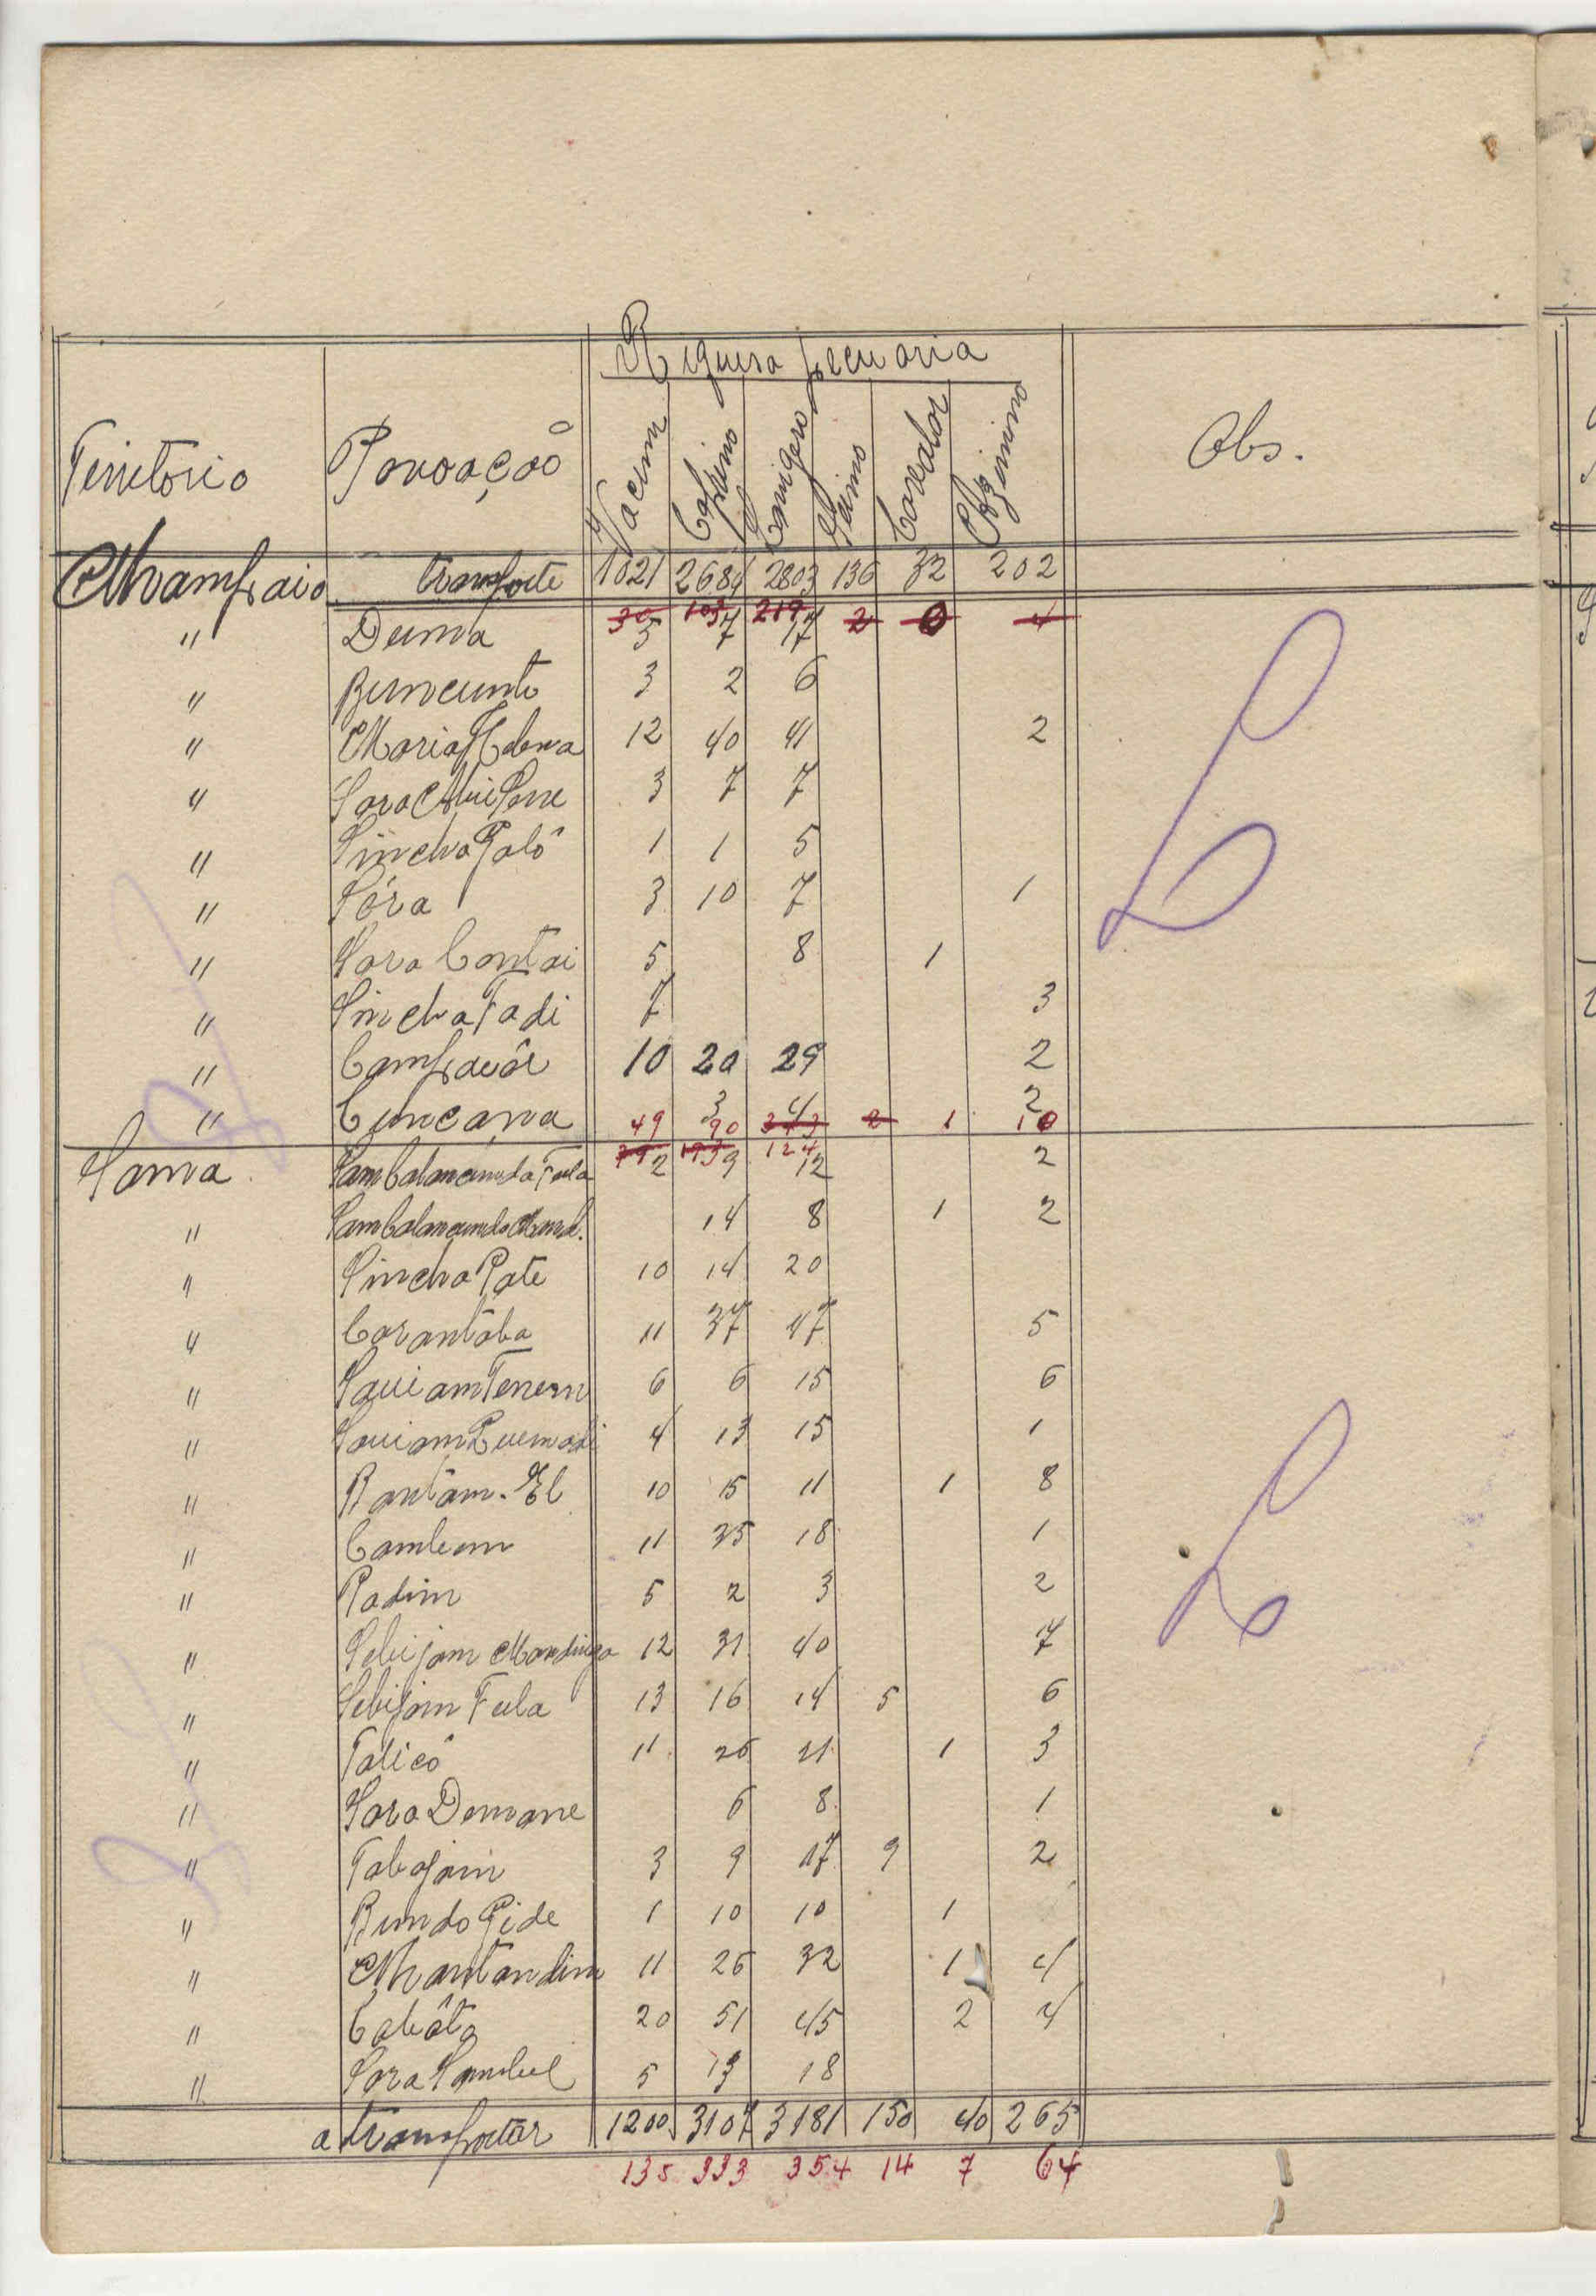 Riquesa pecuaria
Territorio Povoação Vacum Caprino Lanigero Suino Cavalar Azinino Obs.
Mansaio transporte 1021 2684 2803 136 32 202
30 103 219 2 0 4
" Duma 5 7 17
" Buncunto 3 2 6
" Maria 12 40 41 2
" Sara 3 7 7
" Sincha Jalô 1 1 5
" Sóra 3 10 7 1
" Sara Contai 5 8 1
" Sincha Tadi 7 3
" 10 20 29 2
" Cuncana 3 4 2
49 90 343 2 1 10
124
Sama Sambalancunda Fula 2 9 12 2
" Sambalancunda Mand. 14 8 1 2
" Sincha Pate 10 14 20
" Carantaba 11 37 47 5
" Sauiam Tenem 6 6 15 6
" Sauiam 4 13 15 1
" Bantam-El 10 15 11 1 8
" Cambem 11 35 18 1
" Padim 5 2 3 2
" Sebijam Mandinga 12 31 40 7
" Sebijam Fula 13 16 14 5 6
" Talicó 11 26 21 1 3
" Sara Demane 6 8 1
" Tabajam 3 9 17 9 2
" Bundo Gide 1 10 10 1
" Mantandim 11 26 32 1 4
" Cabóto 20 51 45 2 4
" Sara Sambel 5 13 18
a transportar 1200 3107 3181 150 40 265
135 333 354 14 7 64